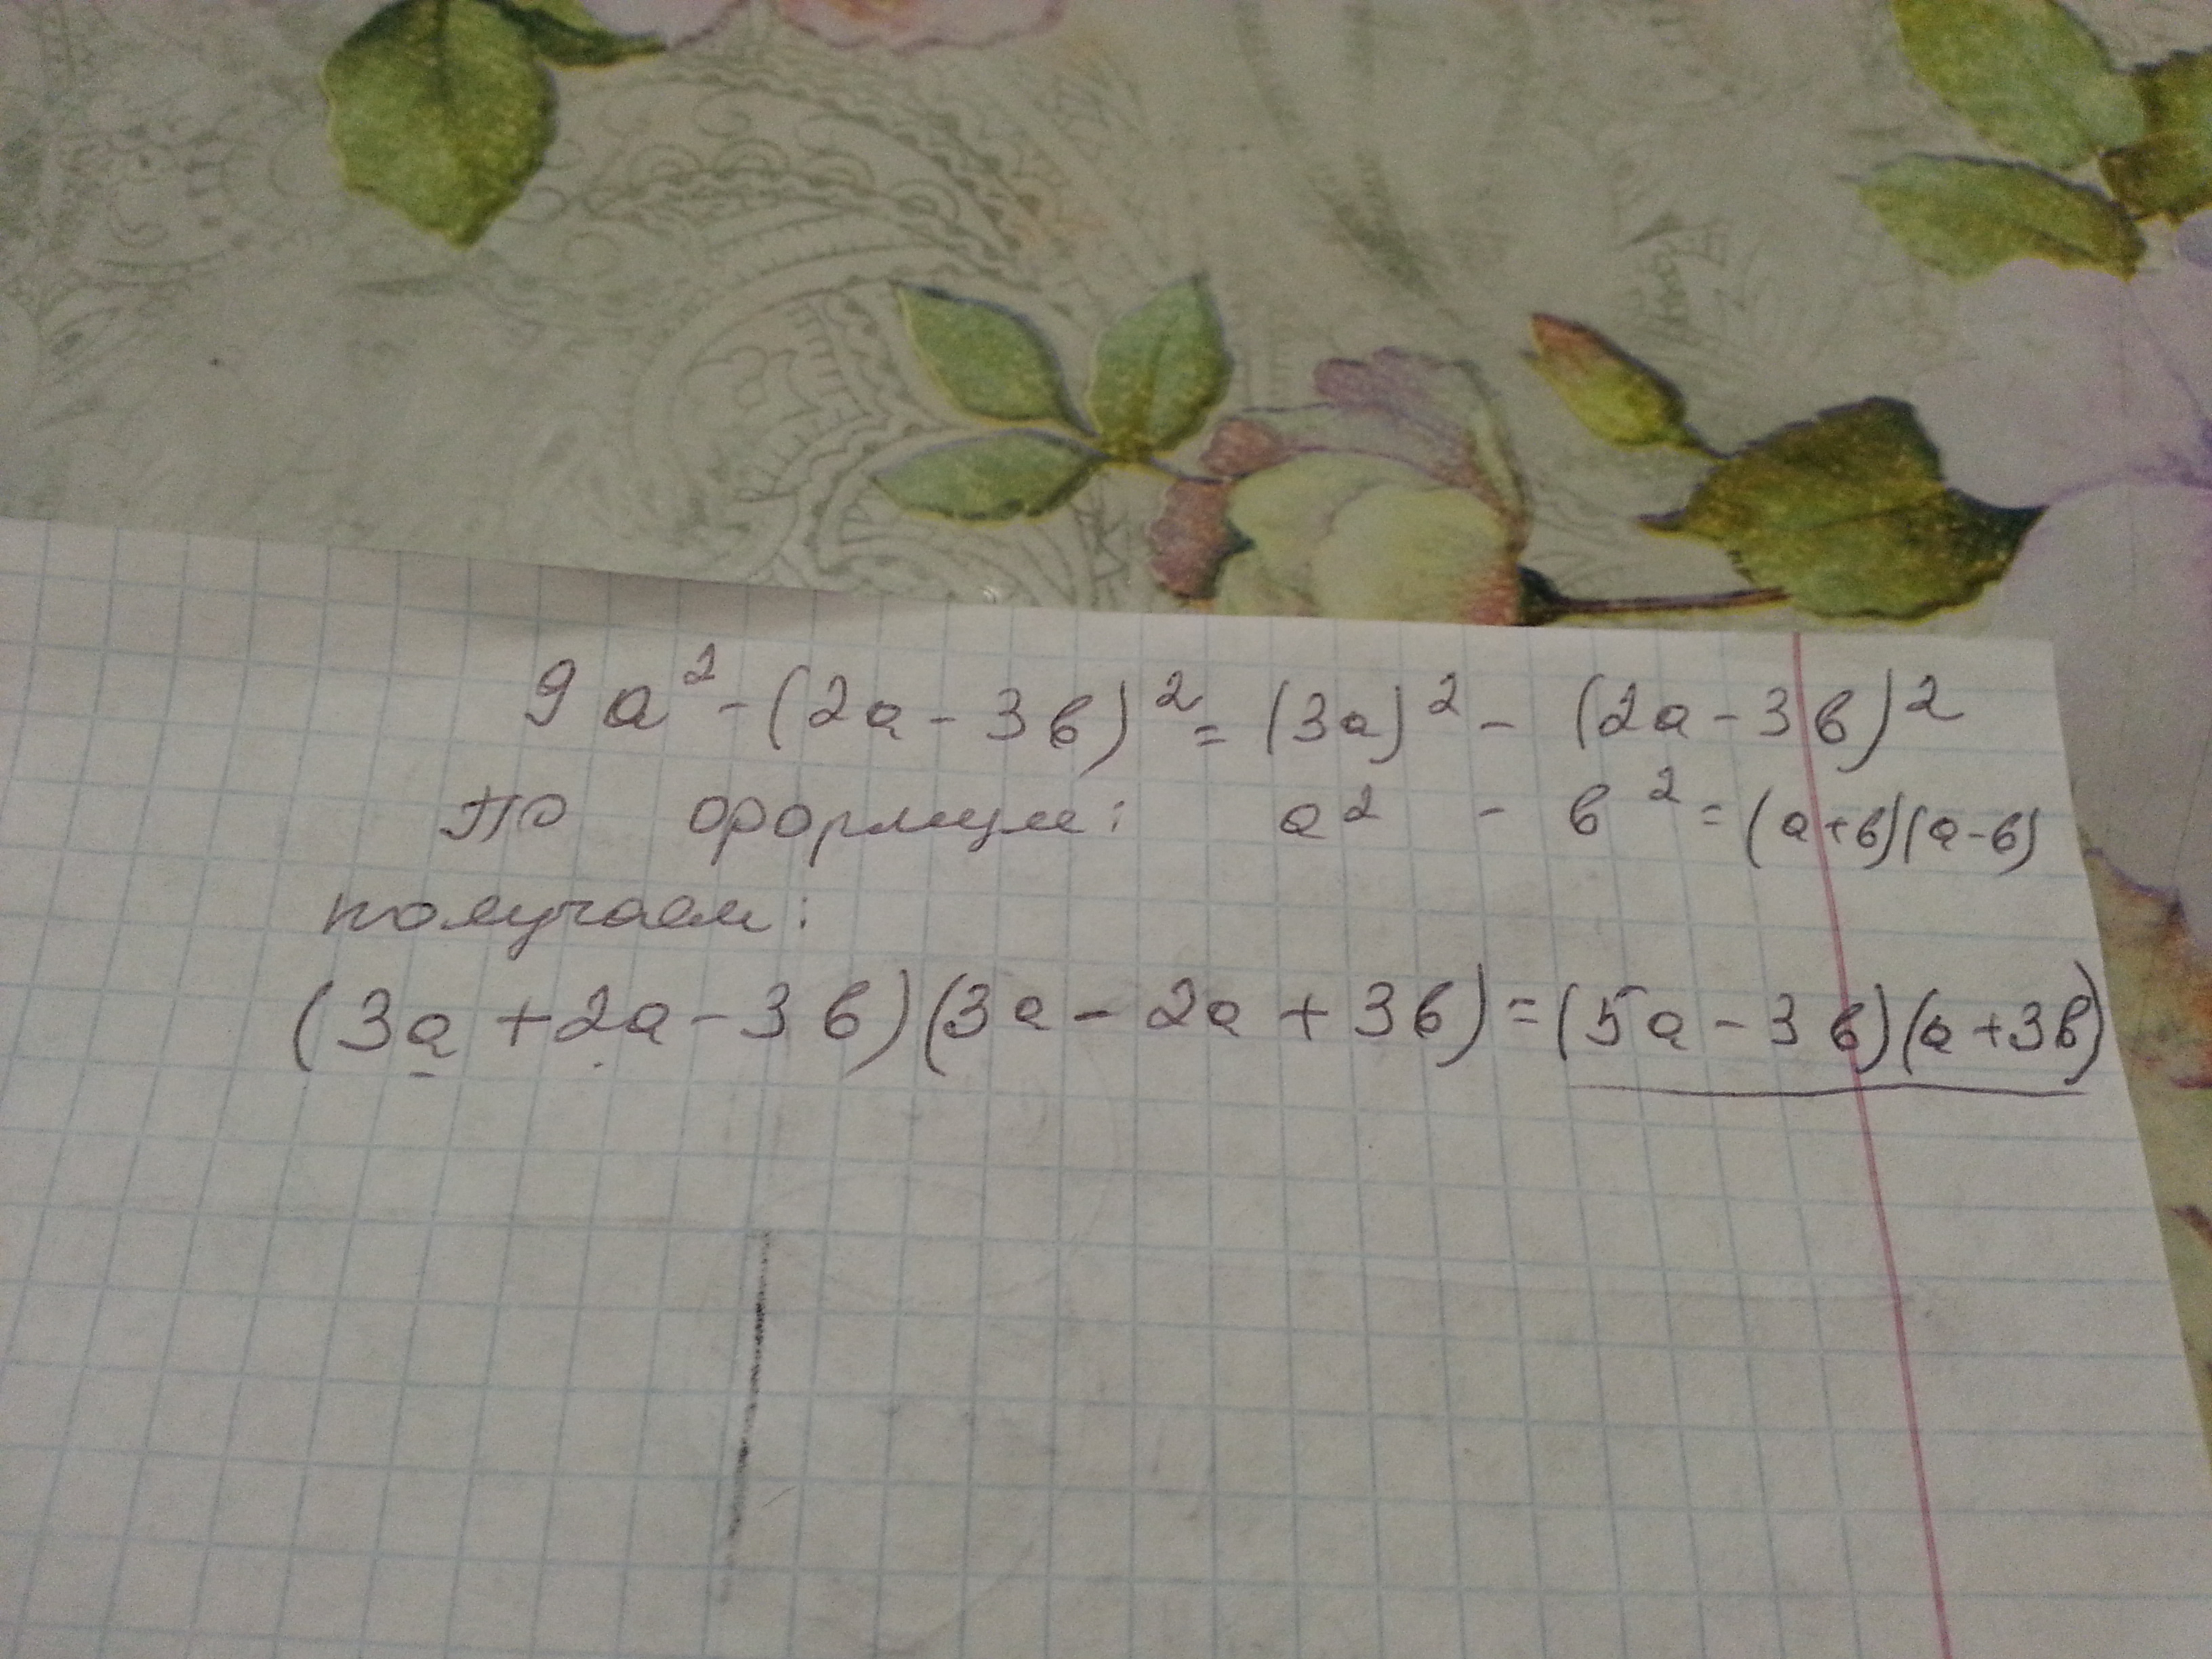 9a² - (2a - 3в)² = (3a)² - (2a - 3в)²
По формуле: a² - в² = (a+в)(a-в)
получаем:
(3a + 2a - 3в)(3a - 2a + 3в) = (5a - 3в)(a + 3в)